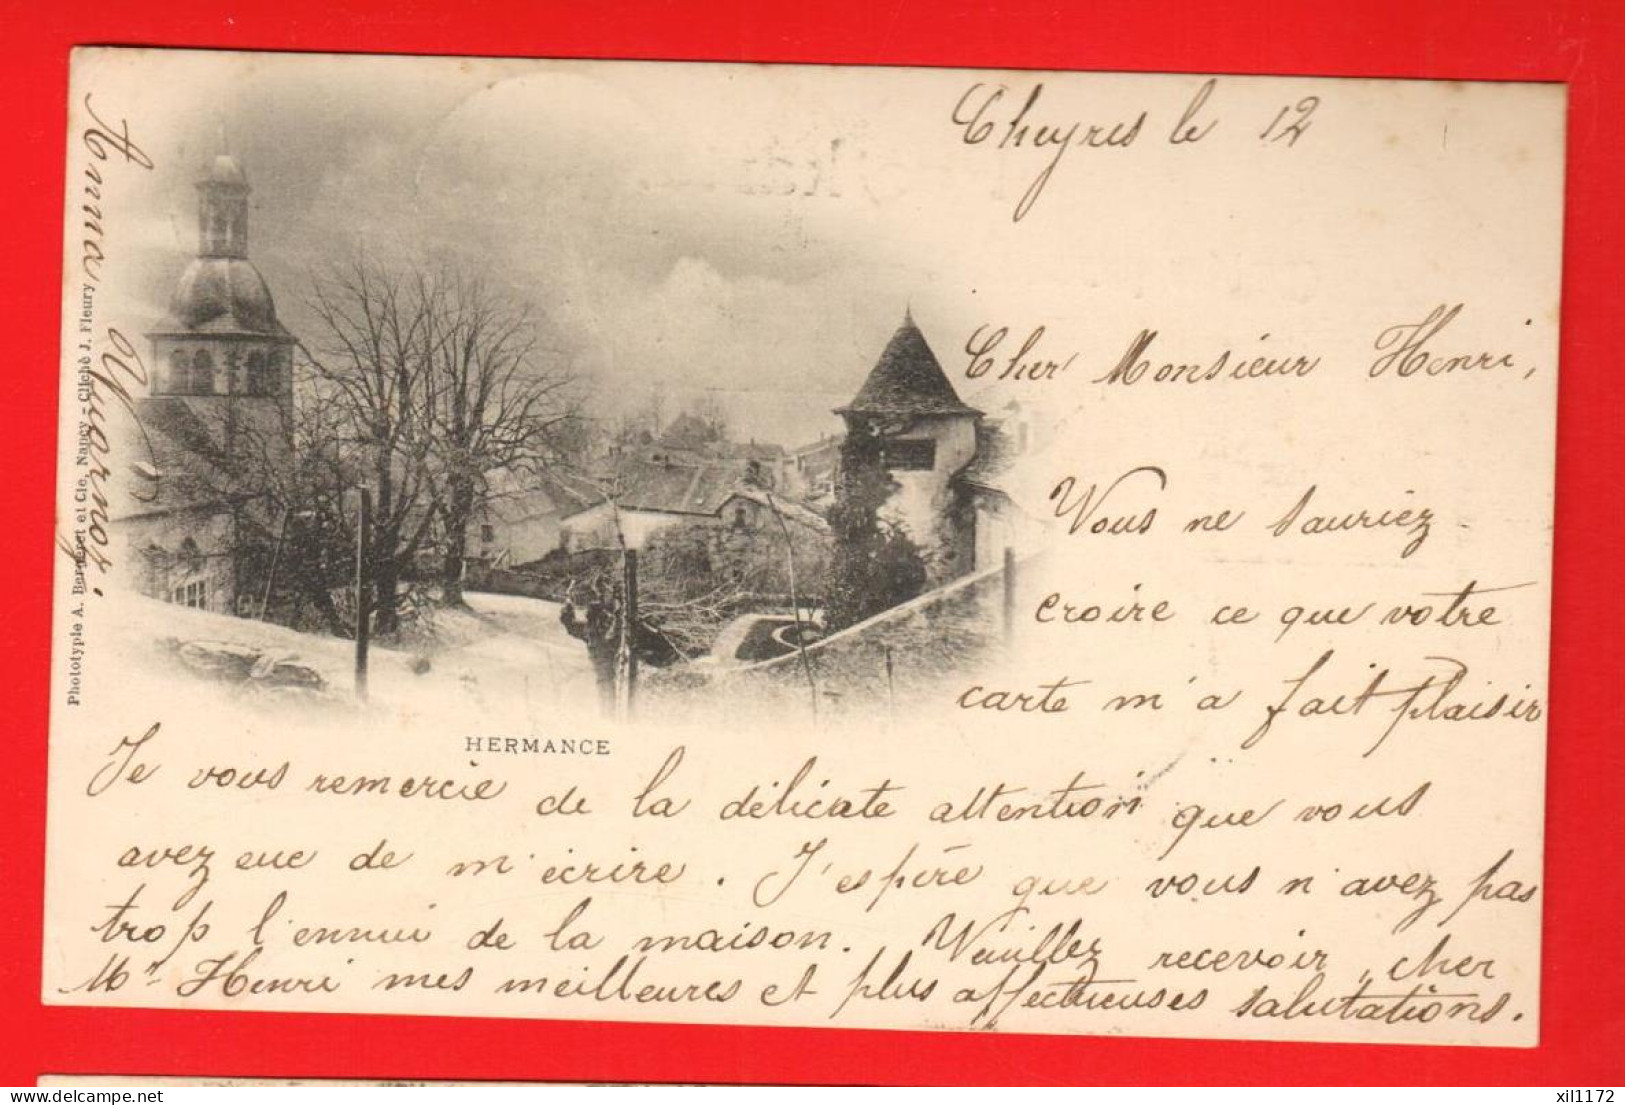 Cheyres le 12
Cher Monsieur Henri,
Vous ne sauriez
croire ce que votre
carte m'a fait plaisir
HERMANCE
Je vous remercie de la délicate attention que vous
avez eue de m'écrire. J'espère que vous n'avez pas
trop l'ennui de la maison. Veuillez recevoir, cher
Mr Henri mes meilleures et plus affectueuses salutations.
Anna
Phototypie A. Bergeret et Cie, Nancy - Cliché J. Fleury
delcampe.net
xil1172